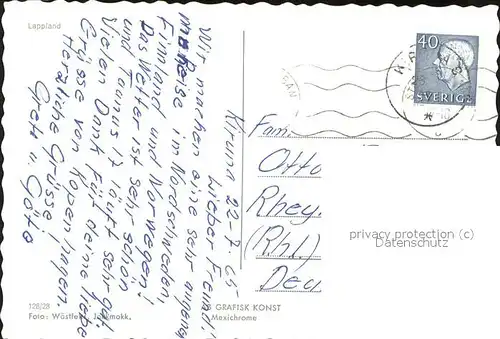 Lappland
Kiruna 22-7. 65
Lieber Freund!
Wir machen eine sehr angenehme
Reise in Nordschweden
Finnland und Norwegen!
Das Wetter ist sehr schön
und Taunus 17 läuft sehr gut
Vielen Dank für deine liebe
Grüsse von Kopenhagen.
Herzliche Grüsse!
Greta u. Gösta
Fam.
Otto
Rhey.
(Rhl.)
Deu
40
SVERIGE
privacy protection (c)
Datenschutz
128/28
Foto: Wästfelt, Jokkmokk.
GRAFISK KONST
Mexichrome